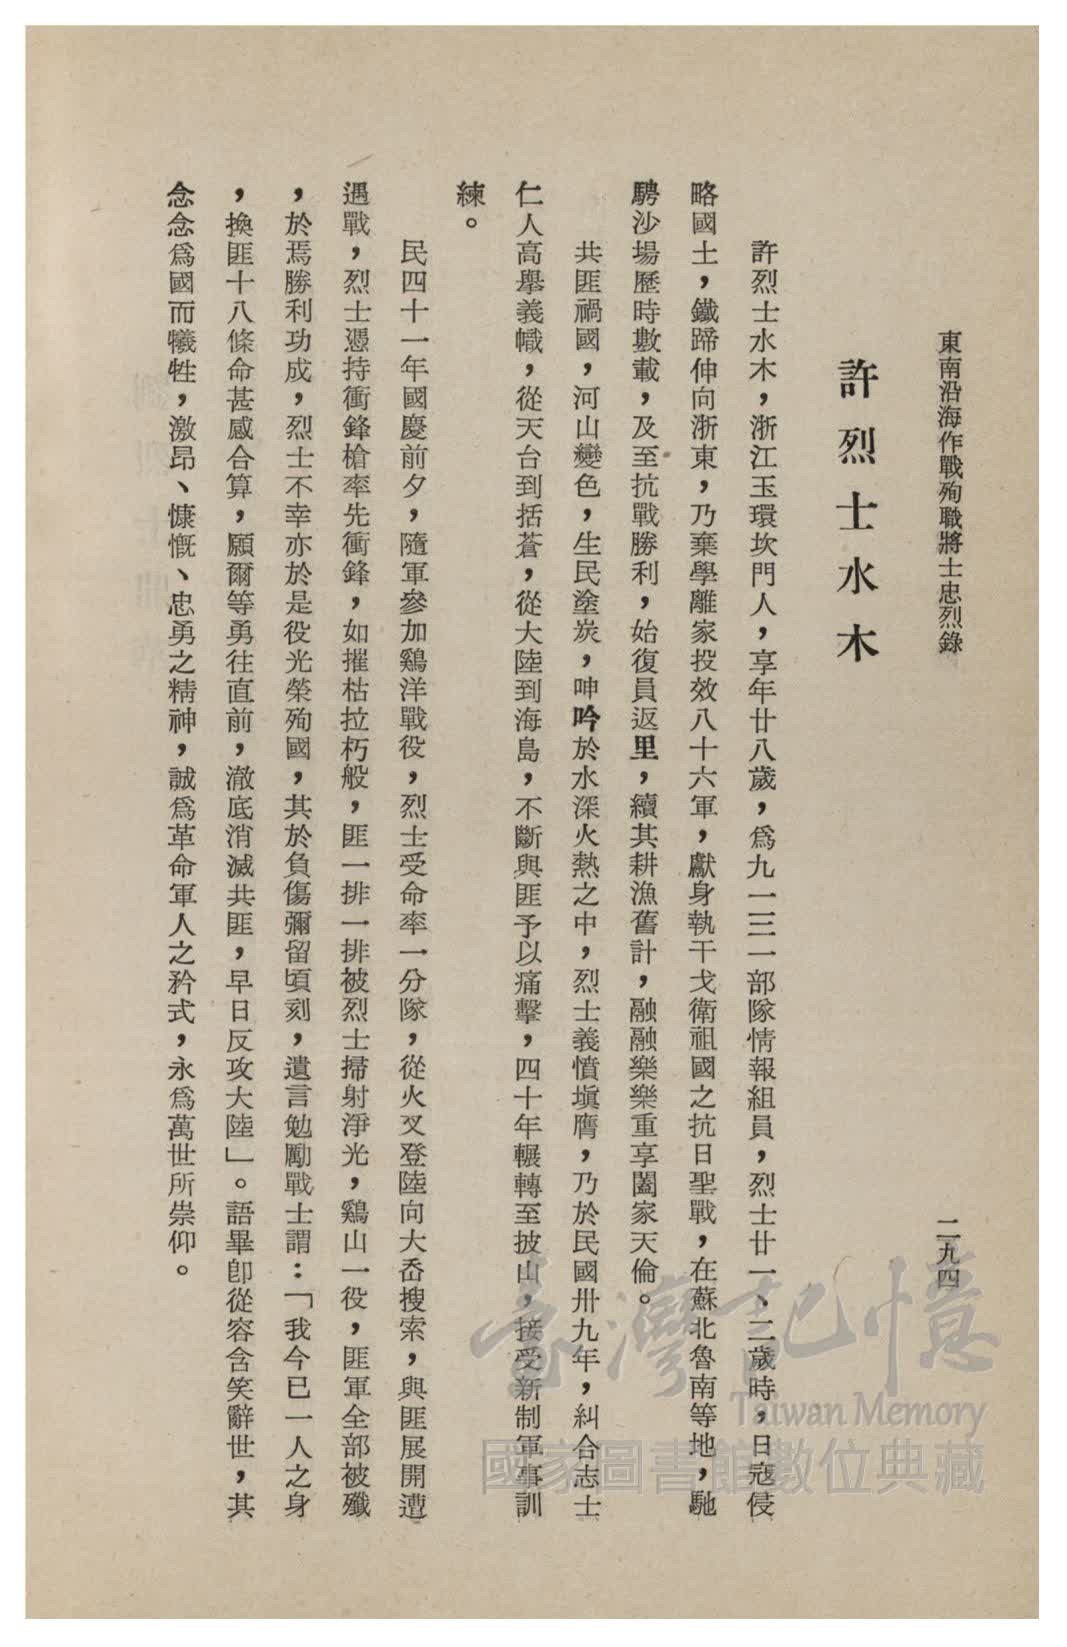 東南沿海作戰殉職將士忠烈錄
二九四
許烈士水木
許烈士水木，浙江玉環坎門人，享年廿八歲，爲九一三一部隊情報組員，烈士廿一、二歲時，日寇侵
略國土，鐵蹄伸向浙東，乃棄學離家投效八十六軍，獻身執干戈衛祖國之抗日聖戰，在蘇北魯南等地，馳
騁沙場歷時數載，及至抗戰勝利，始復員返里，續其耕漁舊計，融融樂樂重享闔家天倫。
共匪禍國，河山變色，生民塗炭，呻吟於水深火熱之中，烈士義憤塡膺，乃於民國卅九年，糾合志士
仁人高舉義幟，從天台到括蒼，從大陸到海島，不斷與匪予以痛擊，四十年輾轉至披山，接受新制軍事訓
練。
民四十一年國慶前夕，隨軍參加鷄洋戰役，烈士受命率一分隊，從火叉登陸向大岙搜索，與匪展開遭
遇戰，烈士憑持衝鋒槍率先衝鋒，如摧枯拉朽般，匪一排一排被烈士掃射淨光，鷄山一役，匪軍全部被殲
，於焉勝利功成，烈士不幸亦於是役光榮殉國，其於負傷彌留頃刻，遺言勉勵戰士謂：「我今已一人之身
，換匪十八條命甚感合算，願爾等勇往直前，澈底消滅共匪，早日反攻大陸」。語畢卽從容含笑辭世，其
念念爲國而犧牲，激昂、慷慨、忠勇之精神，誠爲革命軍人之矜式，永爲萬世所崇仰。
臺灣記憶
Taiwan Memory
國家圖書館數位典藏